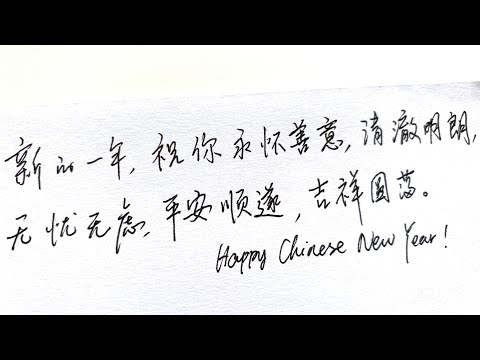 新的一年，祝你永怀善意，清澈明朗，
无忧无虑，平安顺遂，吉祥圆满。
Happy Chinese New Year!